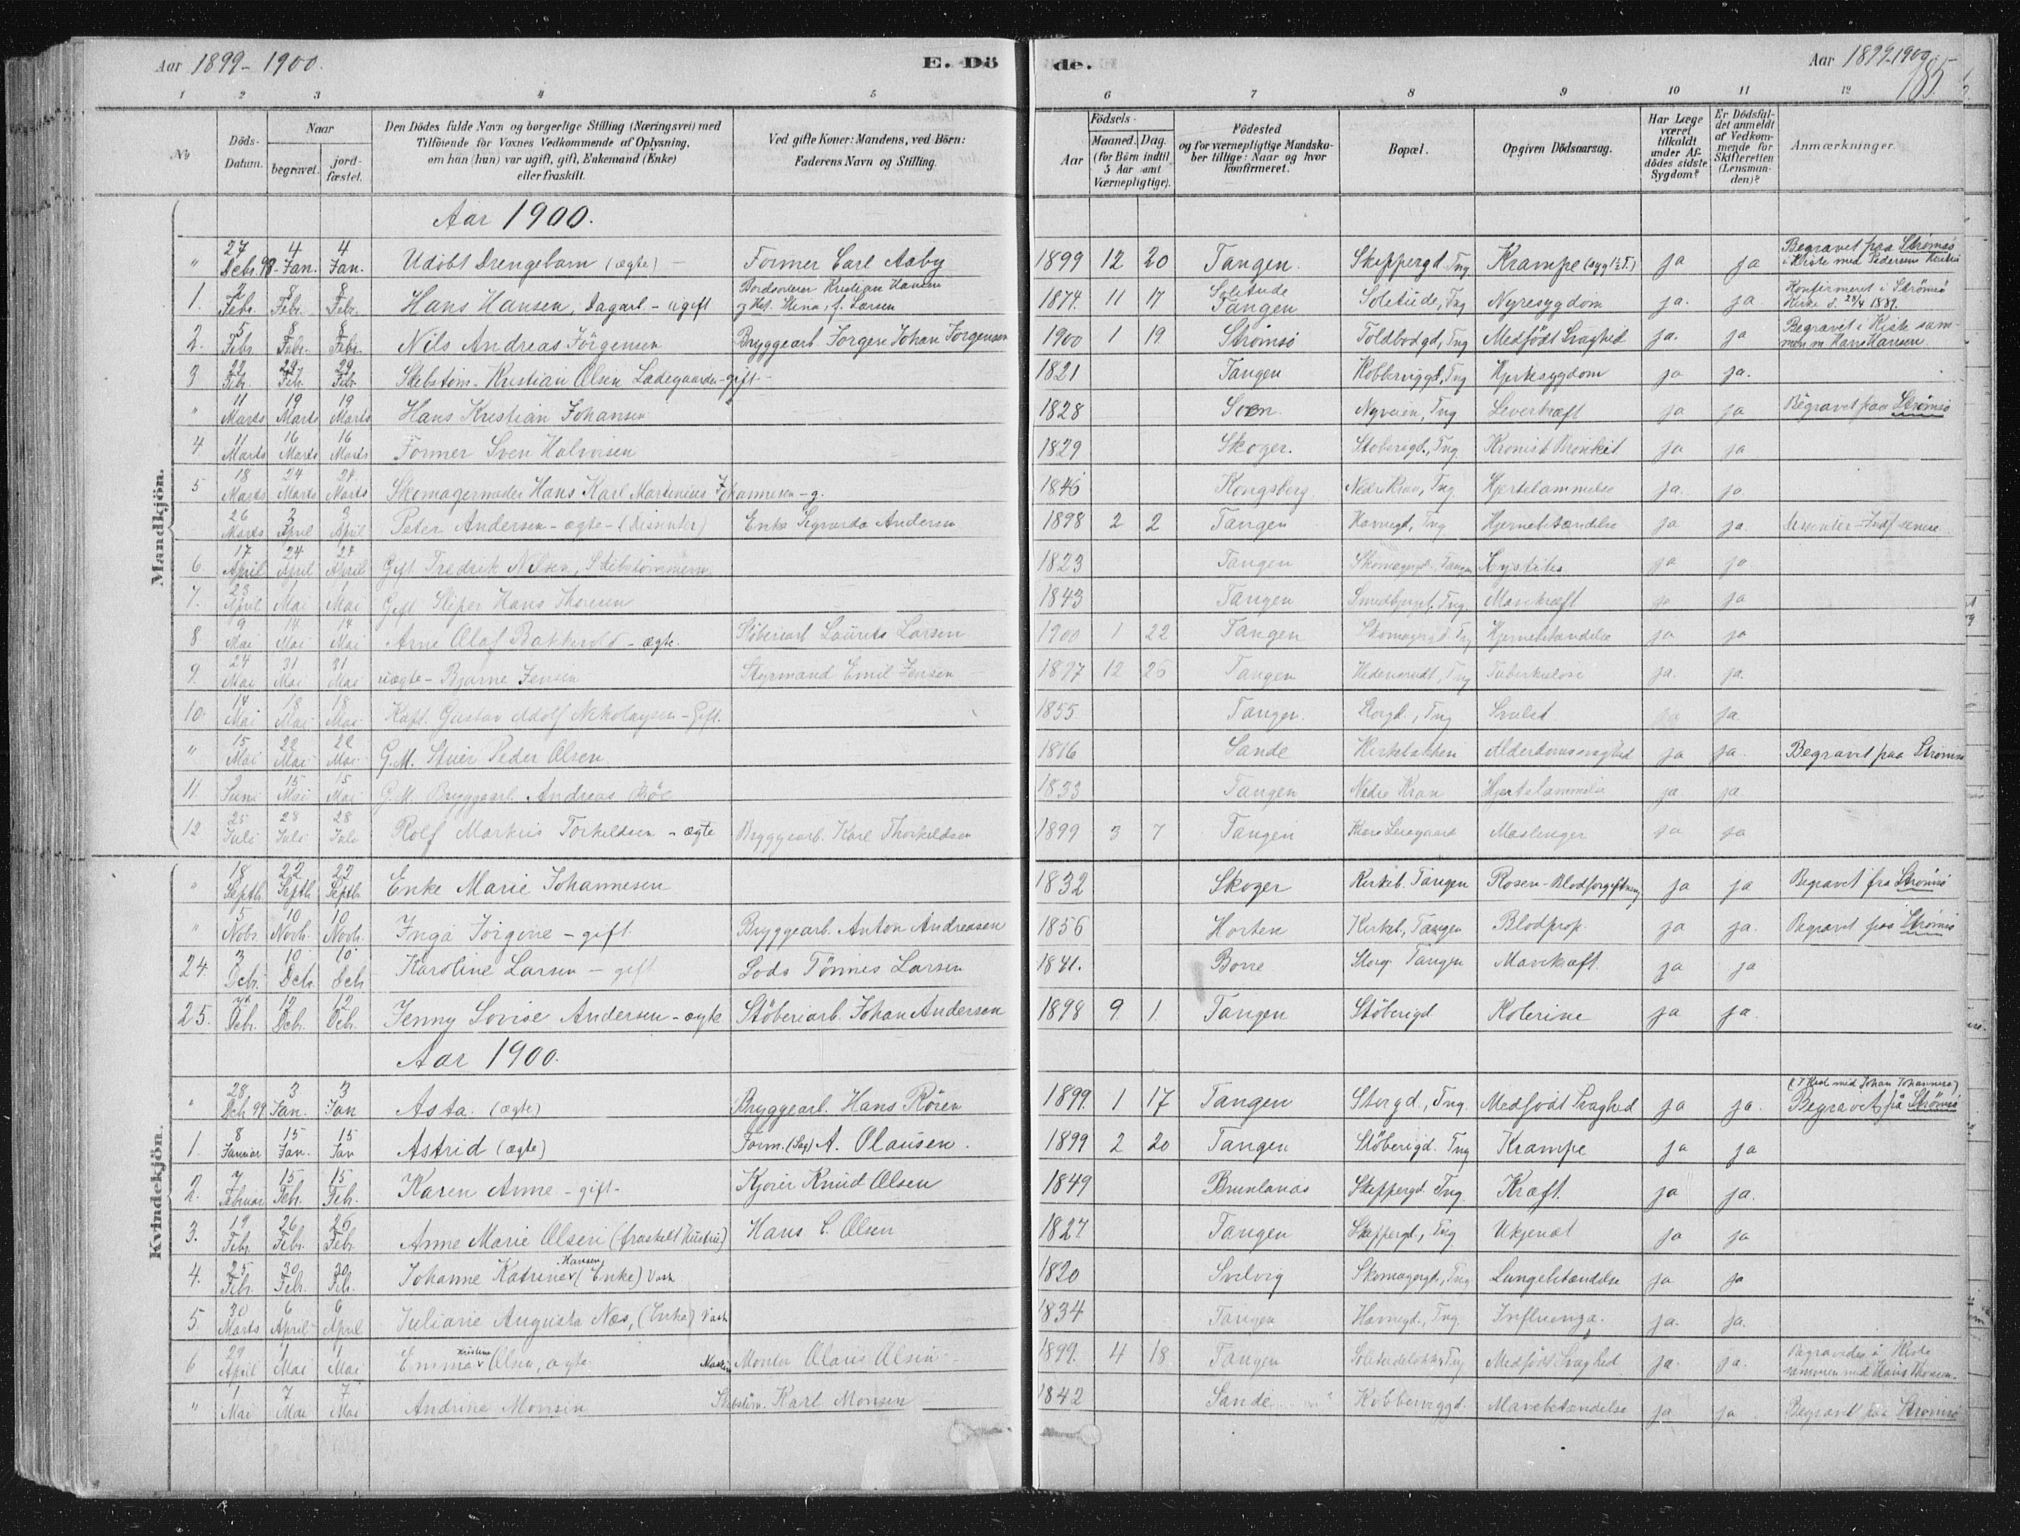 Aar 1899-1900.
E. Dö
de.
Aar 1899-1900
185.
1 2 3 4 5 6 7 8 9 10 11 12
No
Döds-Datum.
Naar
begravet.
jord-fæstet.
Den Dödes fulde Navn og borgerlige Stilling (Næringsvei) med
Tilföiende for Voxnes Vedkommende af Oplysning,
om han (hun) var ugift, gift, Enkemand (Enke)
eller fraskilt.
Ved gifte Koner: Mandens, ved Börn:
Faderens Navn og Stilling.
Födsels-
Aar
Maaned. Dag.
(for Börn indtil
5 Aar samt
Værnepligtige).
Födested
og for værnepligtige Mandska-
ber tillige: Naar og hvor
konfirmeret.
Bopæl.
Opgiven Dödsaarsag.
Har Læge
været
tilkaldt
under Af-
dödes sidste
Sygdom?
Er Dödsfal-
det anmeldt
af Vedkom-
mende for
Skifteretten
(Lensman-
den)?
Anmærkninger.
Mandkjön.
Aar 1900.
" 27 Debr. 99 4 Jan. 4 Jan. Udöbt Drengebarn (ægte) - Former Carl Aaby 1899 12 20 Tangen. Skippergd. Tng Krampe ja ja Begravet paa Strømsö i Kiste med Pedersens
1. 2 Febr. 8 Febr. 8 Febr. Hans Hansen, Dagarb. - ugift Bordsorterer Kristian Hansen og Hst. Stina, f. Larsen 1874. 11 17 Solitude Tangen Solitude, Tng Nyresygdom ja. ja Konfirmeret i Strömsö Kirke d. 28/4 1889.
2. 5 Febr. 8 Febr. 8 Febr. Nils Andreas Jörgensen Bryggearb Jørgen Johan Jørgensen 1900 1 19. Strømsö Toldbodgd, Tng Medfödt Svaghed ja. ja Begravet i Kiste sammen m. Hans Hansen
3 22 Feb. 29 Feb. 29 Feb Skibstöm. Kristian Olsen Ladegaarden - gift - 1821 Tangen Kobberviggt, Tng Hjertesygdom ja ja.
" 11 Marts 19 Marts 19 Marts Hans Kristian Johansen 1828 Nyveien, Tng Leverkræft ja ja Begravet paa Strømsö
4 11 Marts 16 Marts 16 Marts Former Sven Halvorsen 1829 Skoger. Stöberigd., Tng. Kronisk Bronkit ja ja
5 18 Marts 24 Marts 24 Marts Skomagermester Hans Karl Martinius Johannesen - g. 1846 Kongsberg. Nedre Kran, Tng Hjertelammelse ja. ja
26 Marts 3 April 3 April Peter Andersen - ægte - (Dissenter) Enke Andersen 1898 2 2 Tangen Havnegd, Tng Hjernebetændelse ja ja. Dissenter -
6. 17 April 24 April 24 April Gift Fredrik Nilsen, Skibstömmerm. 1823 Tangen Skomagergd. Tangen Cystitis ja ja
7. 23 April Mai Mai Gift Sliper Hans Thoresen 1843 Tangen Smedbjerget, Tng. Mavekræft ja ja
8 9 Mai 14 Mai 14 Mai Arne Olaf - ægte. Støberiarb Laurits Larsen 1900 1 22 Tangen Skomagergd. Tng Hjernebetændelse ja ja
9. 24 Mai 31 Mai 31 Mai uægte - Bjarne Jensen Styrmand Emil Jensen 1897 12 26 Tangen Tng Tuberkulose ja. ja.
10. 14 Mai 18 Mai 18 Mai Kapt. Gustav Adolf Nikolaysen - Gift. 1855. Tangen. Storgd., Tng ja.
" 15 Mai 22 Mai 22 Mai G.M. Stuer Peder Olsen 1816 Sande Kirkebakken Alderdomssvaghed ja ja. Begravet paa Strømsö
11. 2 Juni 15 Mai 15 Mai G.M. Bryggearb. Andreas 1833 Tangen Nedre Kran Hjertelammelse ja ja
12 25 Juli 28 Juli 28 Juli Rolf Markus Torkildsen - ægte Bryggearb. Karl Thorkeldsen 1899 3 7 Tangen Meslinger ja ja
Kvindekjön.
" 18 Septb. 22 Septb 22 Septb Enke Marie Johannesen 1832 Skoger Kirkeb. Tangen Rosen - Blodforgiftning ja ja Begravet fra Strømsö
" 5 Nobr. 10 Novb. 10 Novb. Inga Jörgine - gift. Bryggearb. Anton Andreasen 1856 Horten Kirkeb., Tangen Blodprop. ja ja. Begravet paa Strømsö
24. 3 Dcbr. 10 Dcbr. 10 Dcbr Karoline Larsen - gift Lods Tönnes Larsen 1841. Borre Storg Tangen Mavekræft. ja ja
25. Dcbr. 12 Dcbr. 12 Dcbr. Jenny Lovise Andersen - ægte Støberiarb. Johan Andersen 1898 9. 1. Tangen Støberigd Kolerine ja ja.
Aar 1900.
" 28 Dcb 99 3 Jan. 3 Jan Asta. (ægte) Bryggearb. Hans Røren 1899. 1 17 Tangen Storgd., Tng. Medfödt Svaghed ja ja. (I Kiste med Johan Johannesen) Begravet på Strømsö
1. 8 Januar 15 Jan. 15 Jan Astrid (ægte) Form. (Sag) A. Olausen. 1899 2 20 Tangen Støberigd. Tng Krampe ja ja
2. 7 Februar 15 Febr. 15 Febr. Karen Anne - gift - Kjører Knud Olsen 1849 Brunlanäs Skippergd. Tng Kræft. ja ja.
3. 19 Febr. 26 Febr. 26 Febr. Anne Marie Olsen (fraskilt Hustru) Hans C. Olsen 1827 Tangen Skippergd., Tng Ukjendt ja ja
4. 25 Febr. 30 Febr. 30 Feb. Johanne Katrine Hansen (Enke) 1820 Svelvig Skomagergd, Tng Lungebetændelse ja ja
5. 30 Marts 6 April 6 April Juliane Augusta Næs, (Enke) 1834 Tangen Havnegd., Tng. Influenza. ja. ja.
6 29 April 1 Mai 1 Mai Emma Kristine Olsen, ægte Montør Olaus Olsen 1899. 4 18 Tangen Tng Medfödt Svaghed ja. ja. Begravedes i Kiste sammen med Hans
" 1 Mai 7 Mai 7 Mai Andrine Monsen Skibstöm. Karl Monsen 1842 Sande Kobberviggd. Mavebetændelse ja ja. Begravet paa Strömsö